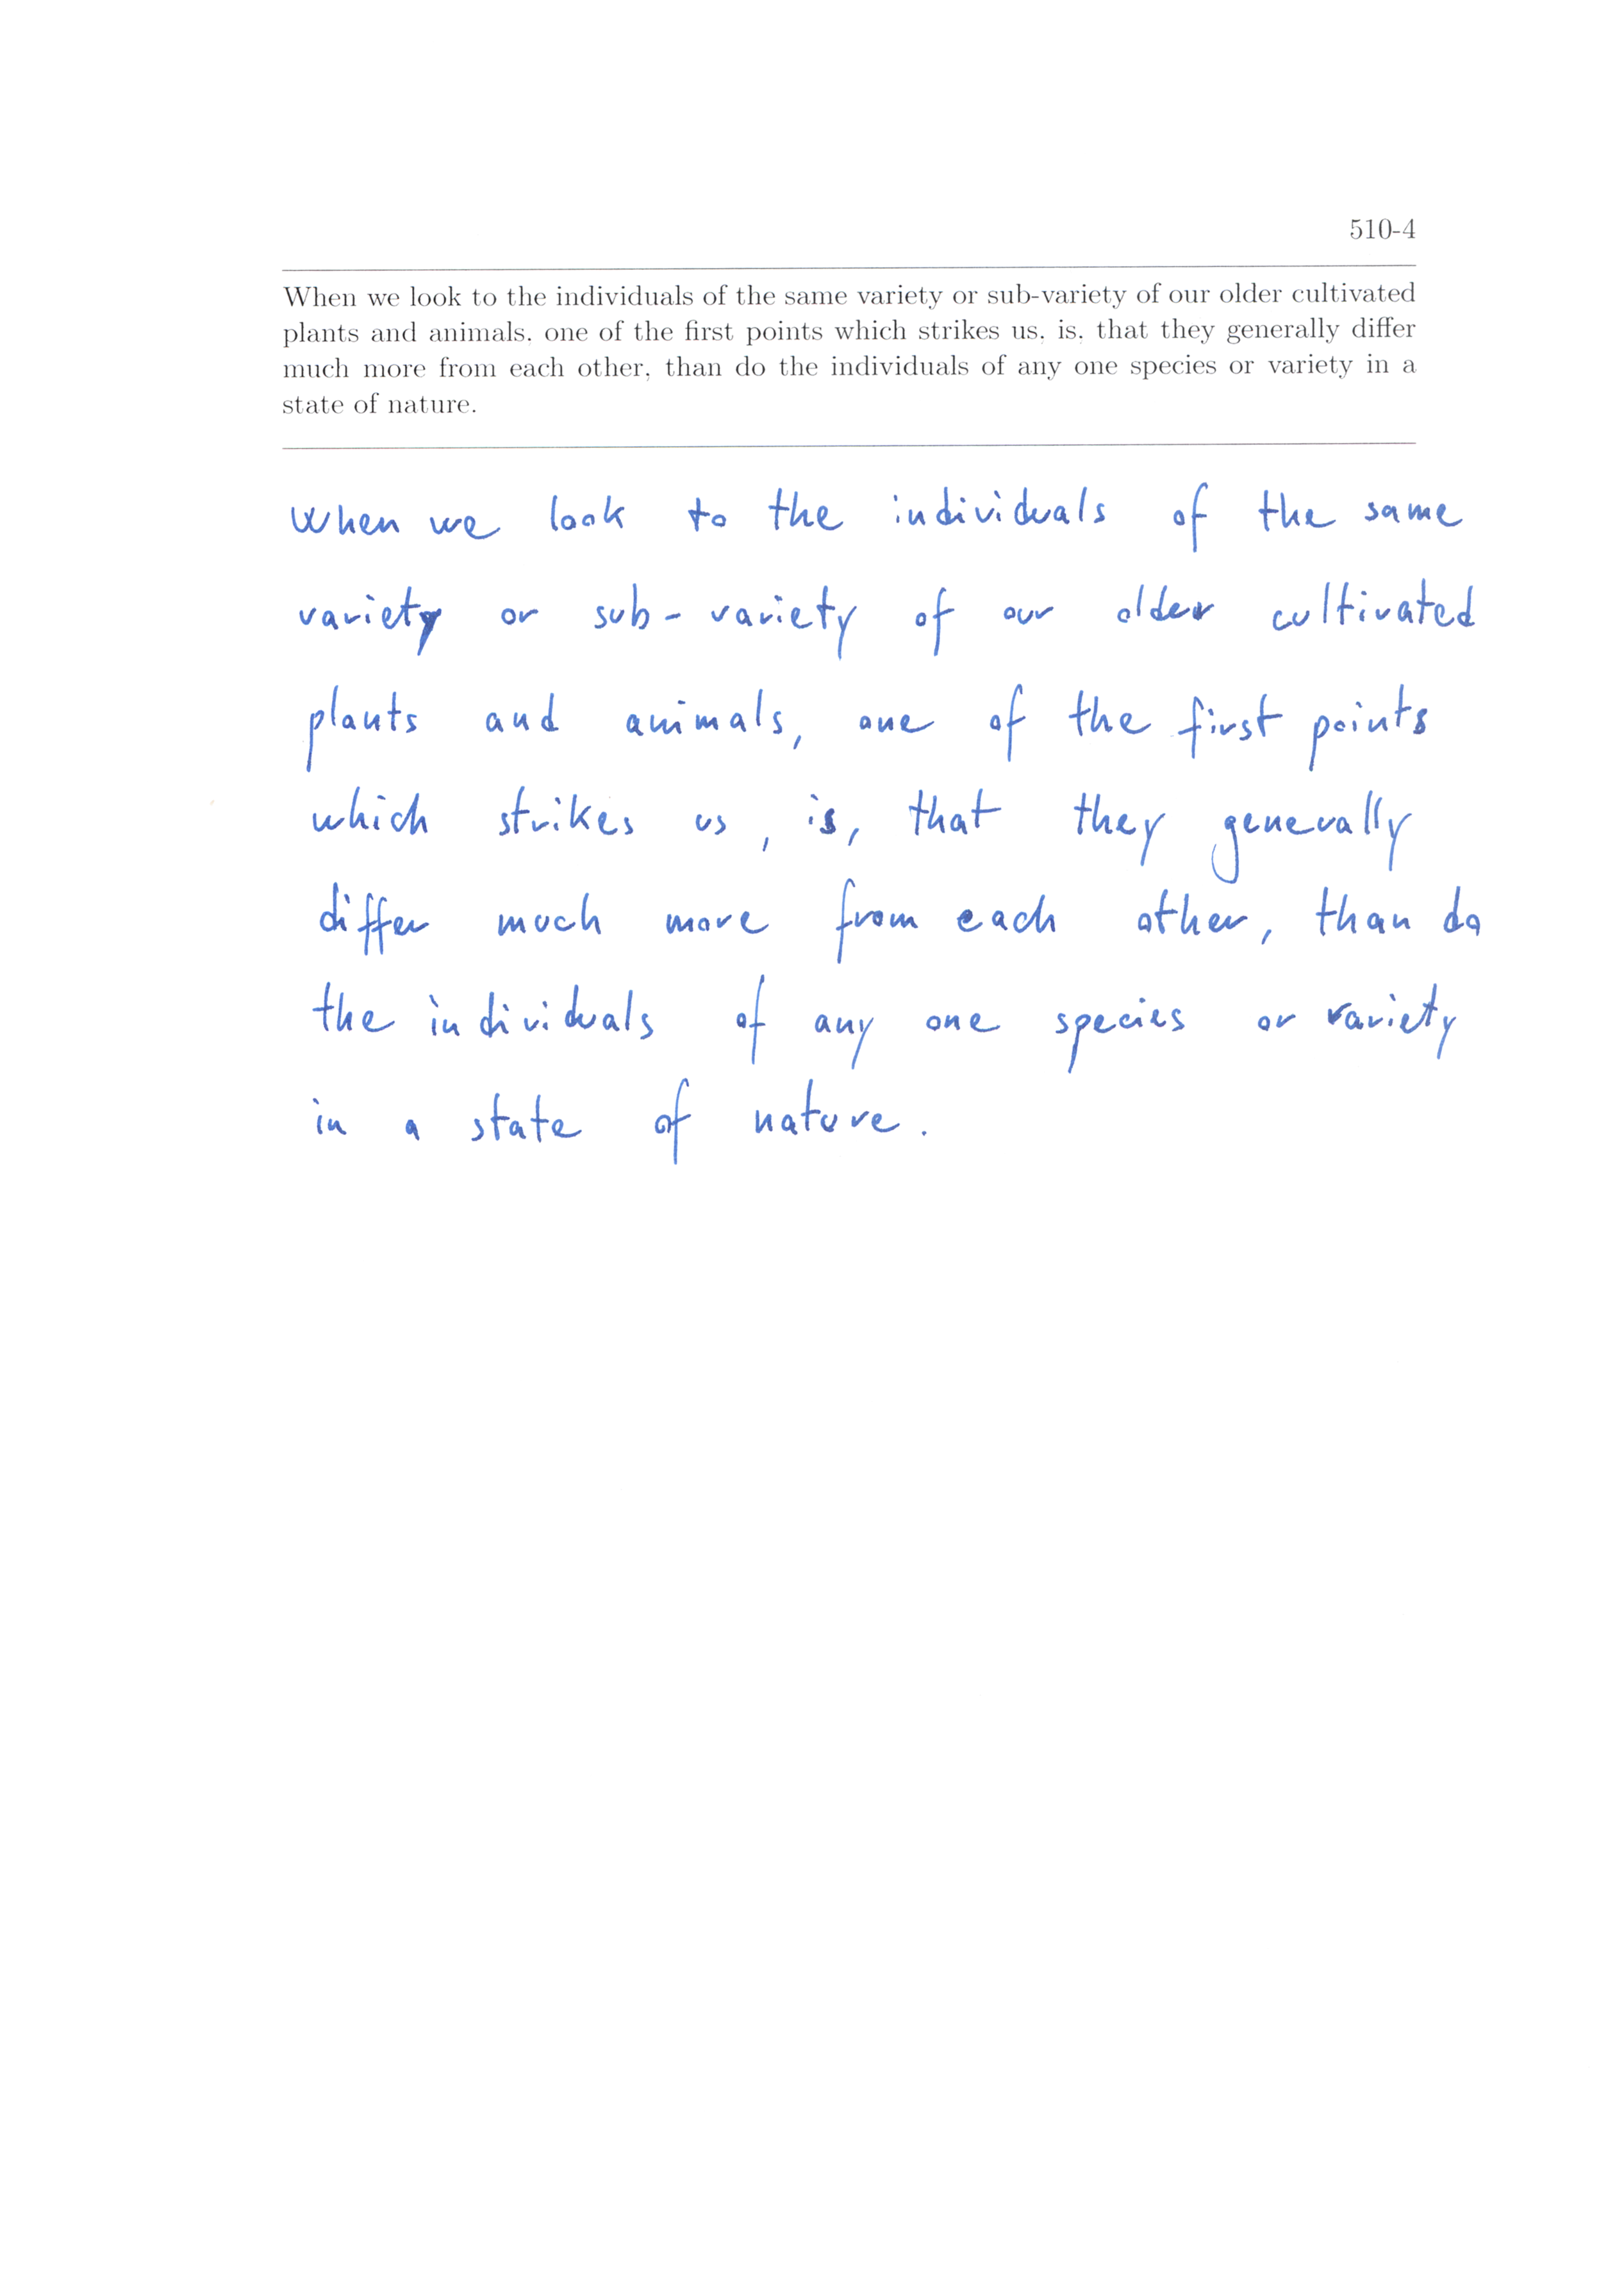 510-4
When we look to the individuals of the same variety or sub-variety of our older cultivated
plants and animals, one of the first points which strikes us, is, that they generally differ
much more from each other, than do the individuals of any one species or variety in a
state of nature.
When we look to the individuals of the same
variety or sub-variety of our older cultivated
plants and animals, one of the first points
which strikes us, is, that they generally
differ much more from each other, than do
the individuals of any one species or variety
in a state of nature.